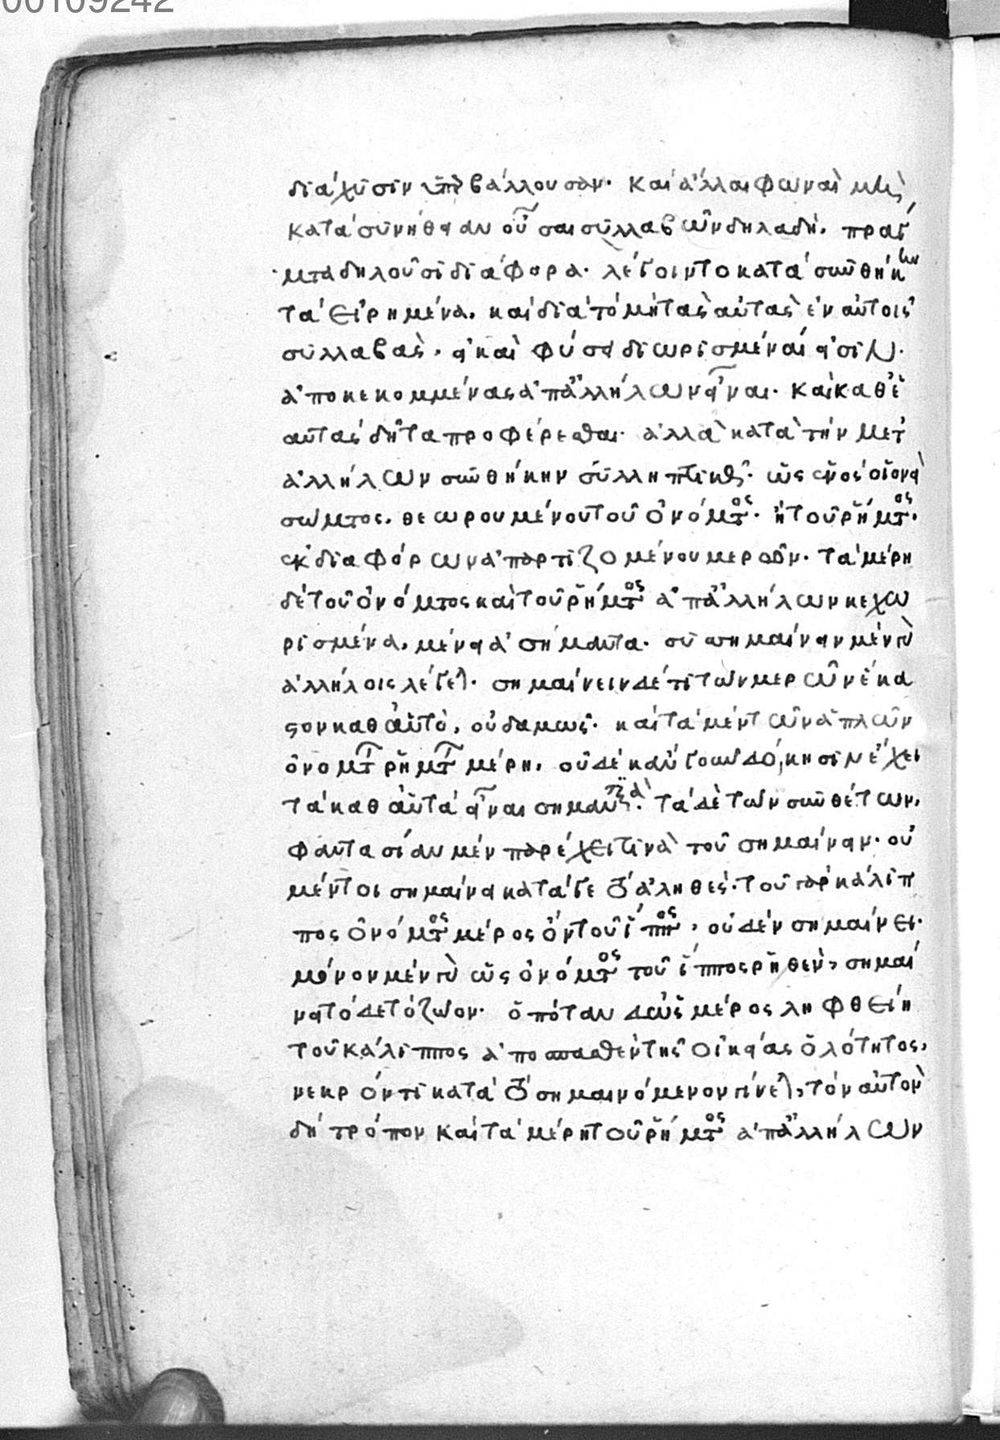 00109242
διάχυσιν ὑπερβάλλουσαν· καὶ ἄλλαι φωναὶ
κατὰ συνήθειαν οὖσαι συλλαβῶν δηλαδή. πράγ
ματα δηλοῦσι διάφορα. λέγοιντο κατὰ συνθήκην
τὰ εἰρημένα. καὶ διὰ τὸ μὴ τὰς αὐτὰς ἐν αὐτοῖς
συλλαβὰς, εἰ καὶ φύσει διωρισμέναι εἰσὶν.
ἀποκεκομμένας ἀπ' ἀλλήλων εἶναι. καὶ καθ' ἑ
αυτὰς δῆτα προφέρεσθαι. ἀλλὰ κατὰ τὴν μετ'
ἀλλήλων συνθήκην συλληπτικῶς. ὡς ἑνὸς οἱονεὶ
σώματος. θεωρουμένου τοῦ ὀνόματος. ἢ τοῦ ῥήματος.
ἐκ διαφόρων ἀπαρτιζομένου μερῶν. τὰ μέρη
δὲ τοῦ ὀνόματος καὶ τοῦ ῥήματος ἀπ' ἀλλήλων κεχω
ρισμένα. μένει ἀσήμαντα. συσημαίνειν μέντοι
ἀλλήλοις λέγεται. σημαίνειν δέ τι τῶν μερῶν ἕκα
στον καθ' αὑτὸ, οὐδαμῶς. καὶ τὰ μὲν τῶν ἁπλῶν
ὀνομάτων ῥημάτων μέρη. οὐδὲ κἂν γοῦν δόκησιν ἔχει
τὰ καθ' αὑτὰ εἶναι σημαντικά. τὰ δὲ τῶν συνθέτων,
φαντασίαν μὲν παρέχει τινὰ τοῦ σημαίνειν. οὐ
μέντοι σημαίνει κατά γε τὸ ἀληθές. τοῦ γὰρ κάλιπ
πος ὀνόματος μέρος ὂν τοῦ ἵππος, οὐδὲν σημαίνει.
μόνον μέντοι ὡς ὀνόματος τοῦ ἵππος ῥηθὲν, σημαί
νει τόδε τὸ ζῷον. ὁπόταν δ' ὡς μέρος ληφθείη
τοῦ κάλιππος ἀποσπασθὲν τῆς οἰκείας ὁλότητος,
νεκρόν τι κατὰ τὸ σημαινόμενον γίνεται, τὸν αὐτὸν
δὴ τρόπον καὶ τὰ μέρη τοῦ ῥήματος ἀπ' ἀλλήλων